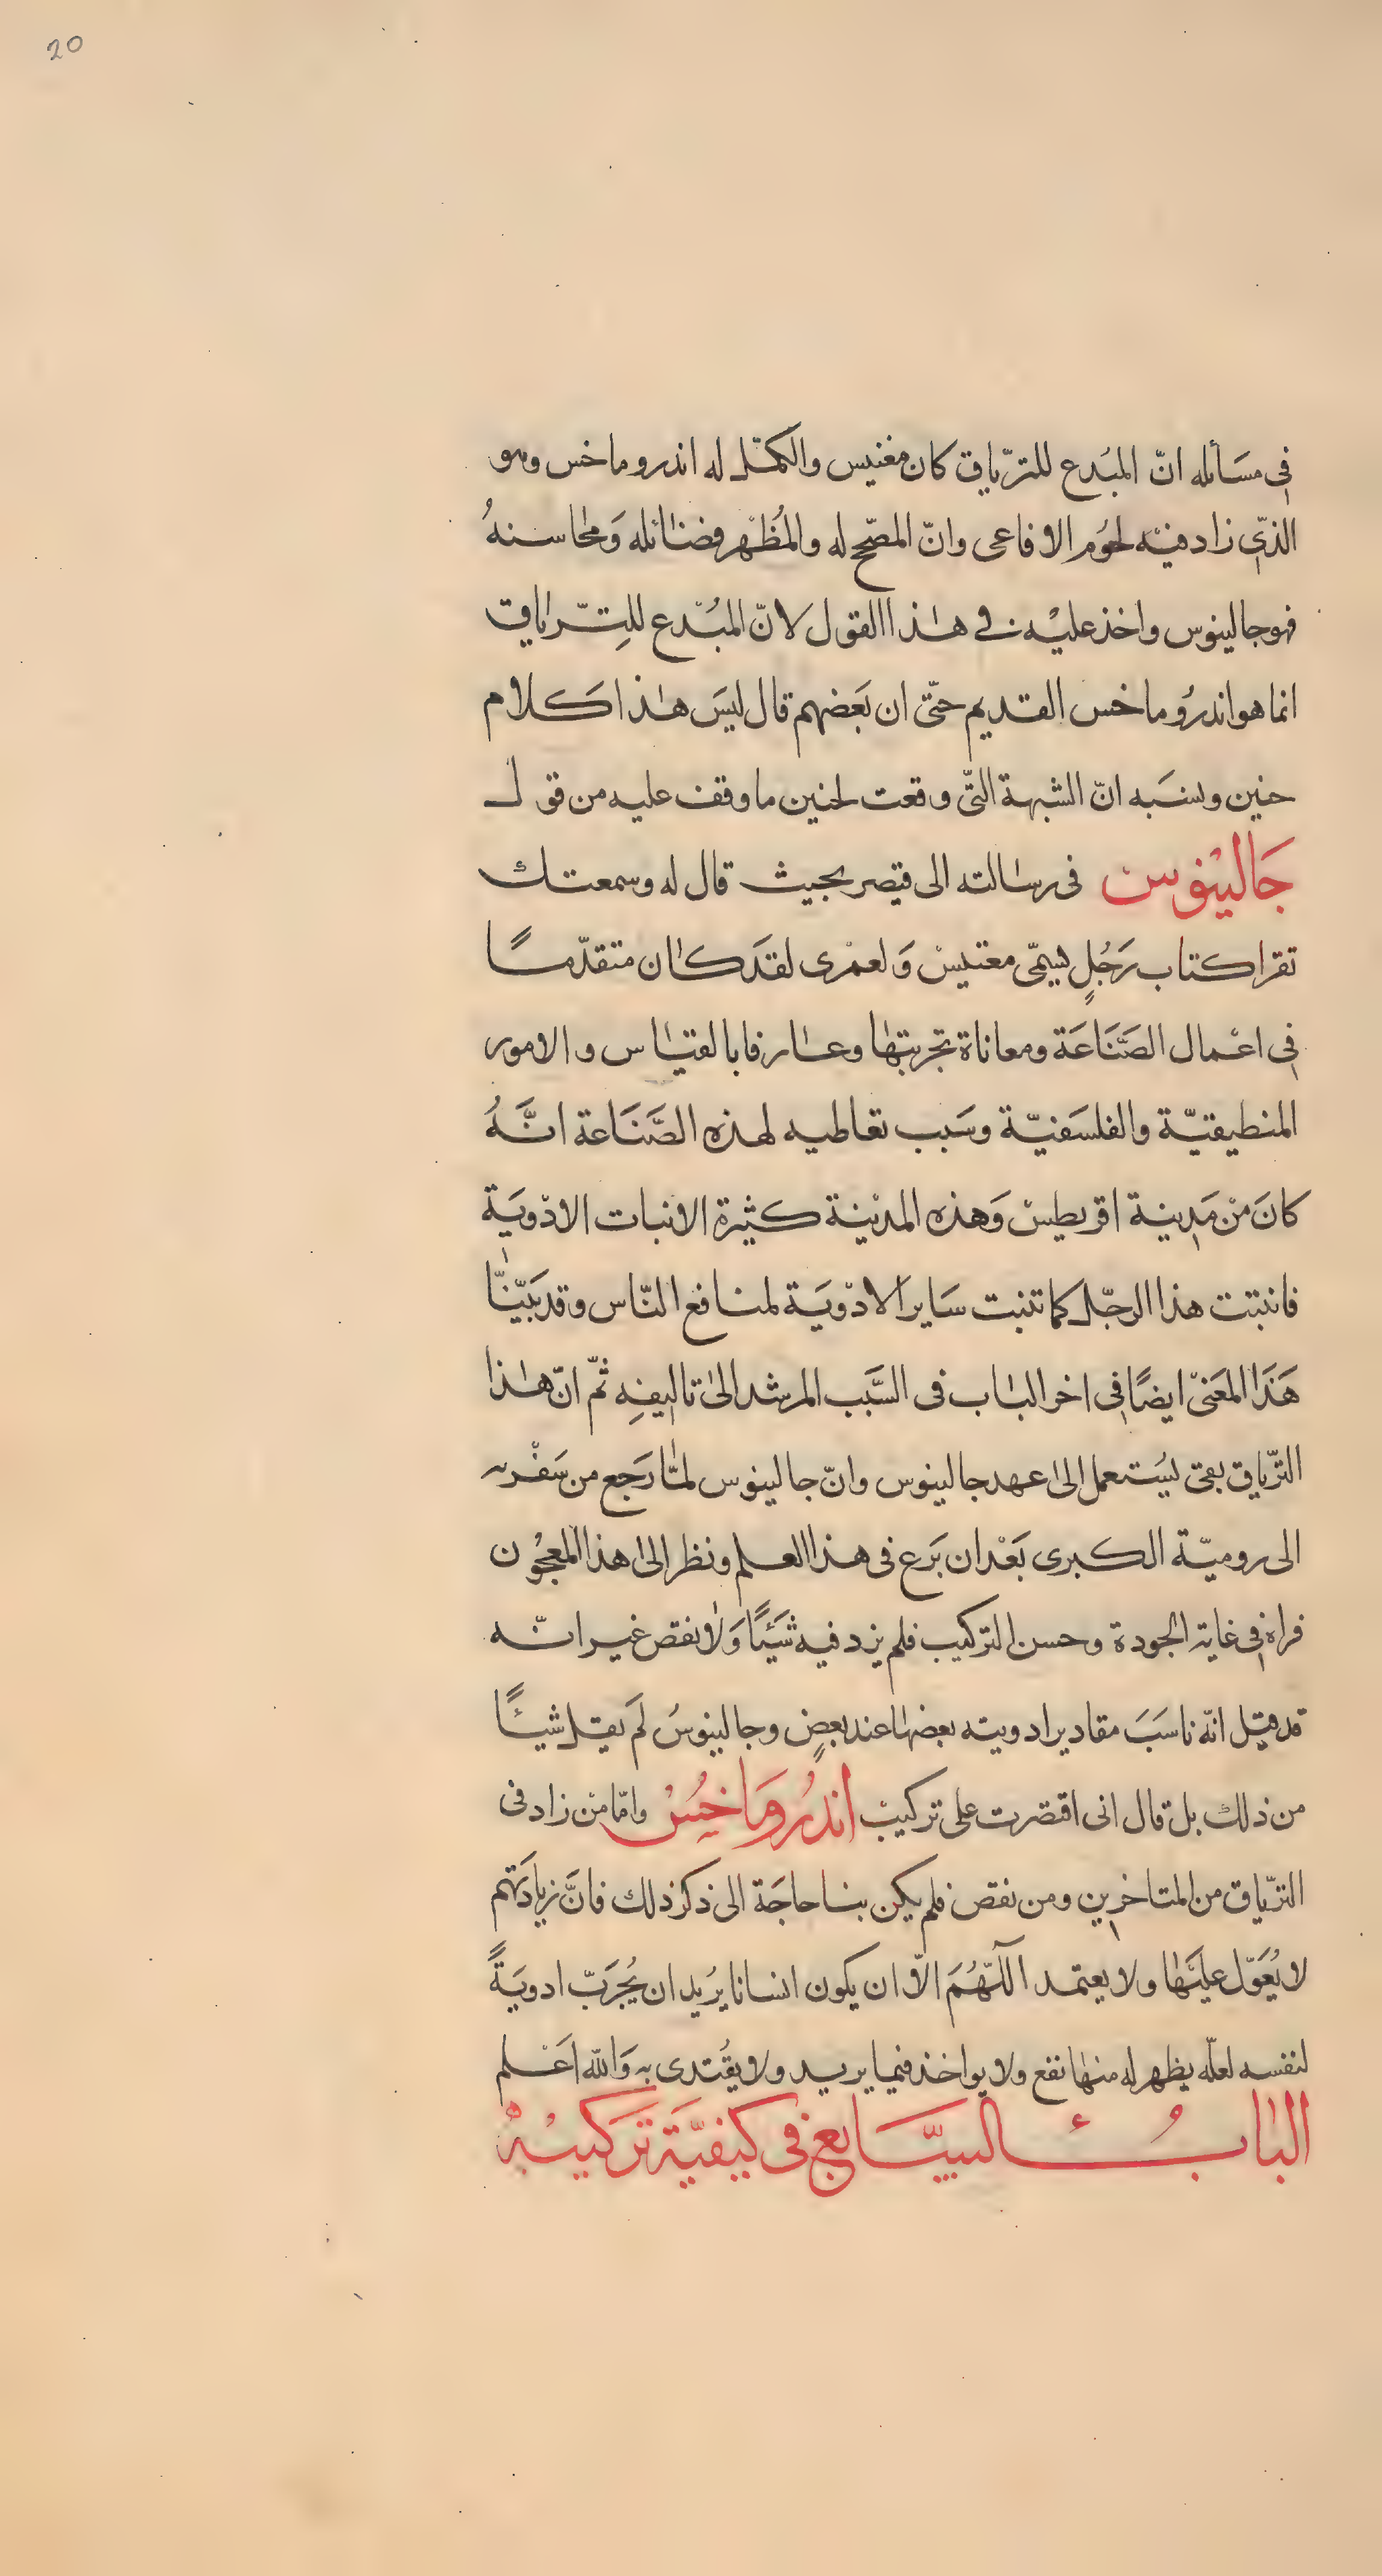 20
في مسَأئله انّ المبُدع للترّياق كان مغنيس والكمّل له اندروماخس وهو
الذّي زاد فيْه لحوُم الافاعى وانّ المصّحح له والمُظْهر فضائله وَمحاسنهُ
فهو جالينوس واخذ عليْه في هٰذا القول لانّ المبُدع للِتّرياق
انما هو اندرُوماخس القديم حتّى ان بَعضهم قال ليسَ هٰذا كلام
حنين ونسَبه انّ الشبهة التّى وقعت لحنين ما وقف عليه من قول
جَاليْنوسْ فى رسالته الى قيصر بحيث قال له وسمعتك
تقرا كتاب رَجُلٍ يسمّى مغنيسْ وَلعمْرى لقدَ كان متقدّمًا
في اعْمال الصَّنَاعَة ومعاناة تجربتها وعارفا بالقياس والامور
المنطيقيّة والفلسَفيّة وسَبب تعاطيه لهذه الصَّنَاعة انَّهُ
كانَ منْ مَدِينة اقريطيسْ وَهذه المديْنة كثيرة الانبات الادْويَة
فانبتت هذا الرجّل كما تنبت سَاير الادْويَة لمنافع النّاس وقد بَيّنّا
هَذَا المعَنىّ ايضًا في اخر الباب فى السَّبب المرشد الى تاليفِهِ ثمّ انّ هٰذا
الترّياق بقى يسُتعمل الى عهد جالينوس وانّ جالينوس لمّا رَجع من سَفْره
الى روميّة الكبرى بَعْد ان بَرَع فى هذا العلم ونظر الى هذا المعجُون
فراه في غاية الجودة وحسن التركيب فلم يزد فيه شَيْئًا وَلا نقص غير انّه
قد قيل انّه ناسَبَ مقادير ادويته بعضها عند بعضٍ وجالينوسُ لَم يقل شيئًا
من ذلك بل قال انى اقتصرت على تركيبْ اندرُومَاخِسُْ وامّا منْ زاد فى
الترّياق من المتاخرِين ومن نقص فلم يكن بنا حاجَة الى ذكر ذلك فانَّ زيادَتهم
لا يُعَوّل عليَْها ولا يعتمد اللّهُمَ الاّ ان يكون انسانا يرُيد ان يُجرَبّ ادويَةً
لنفسه لعلّه يظهر له منها نفع ولا يواخذ فيما يريد ولا يقُتدى به وَالله اعَْلم
البابُ السَّابع فى كيفيَّة تَركيبْهْ